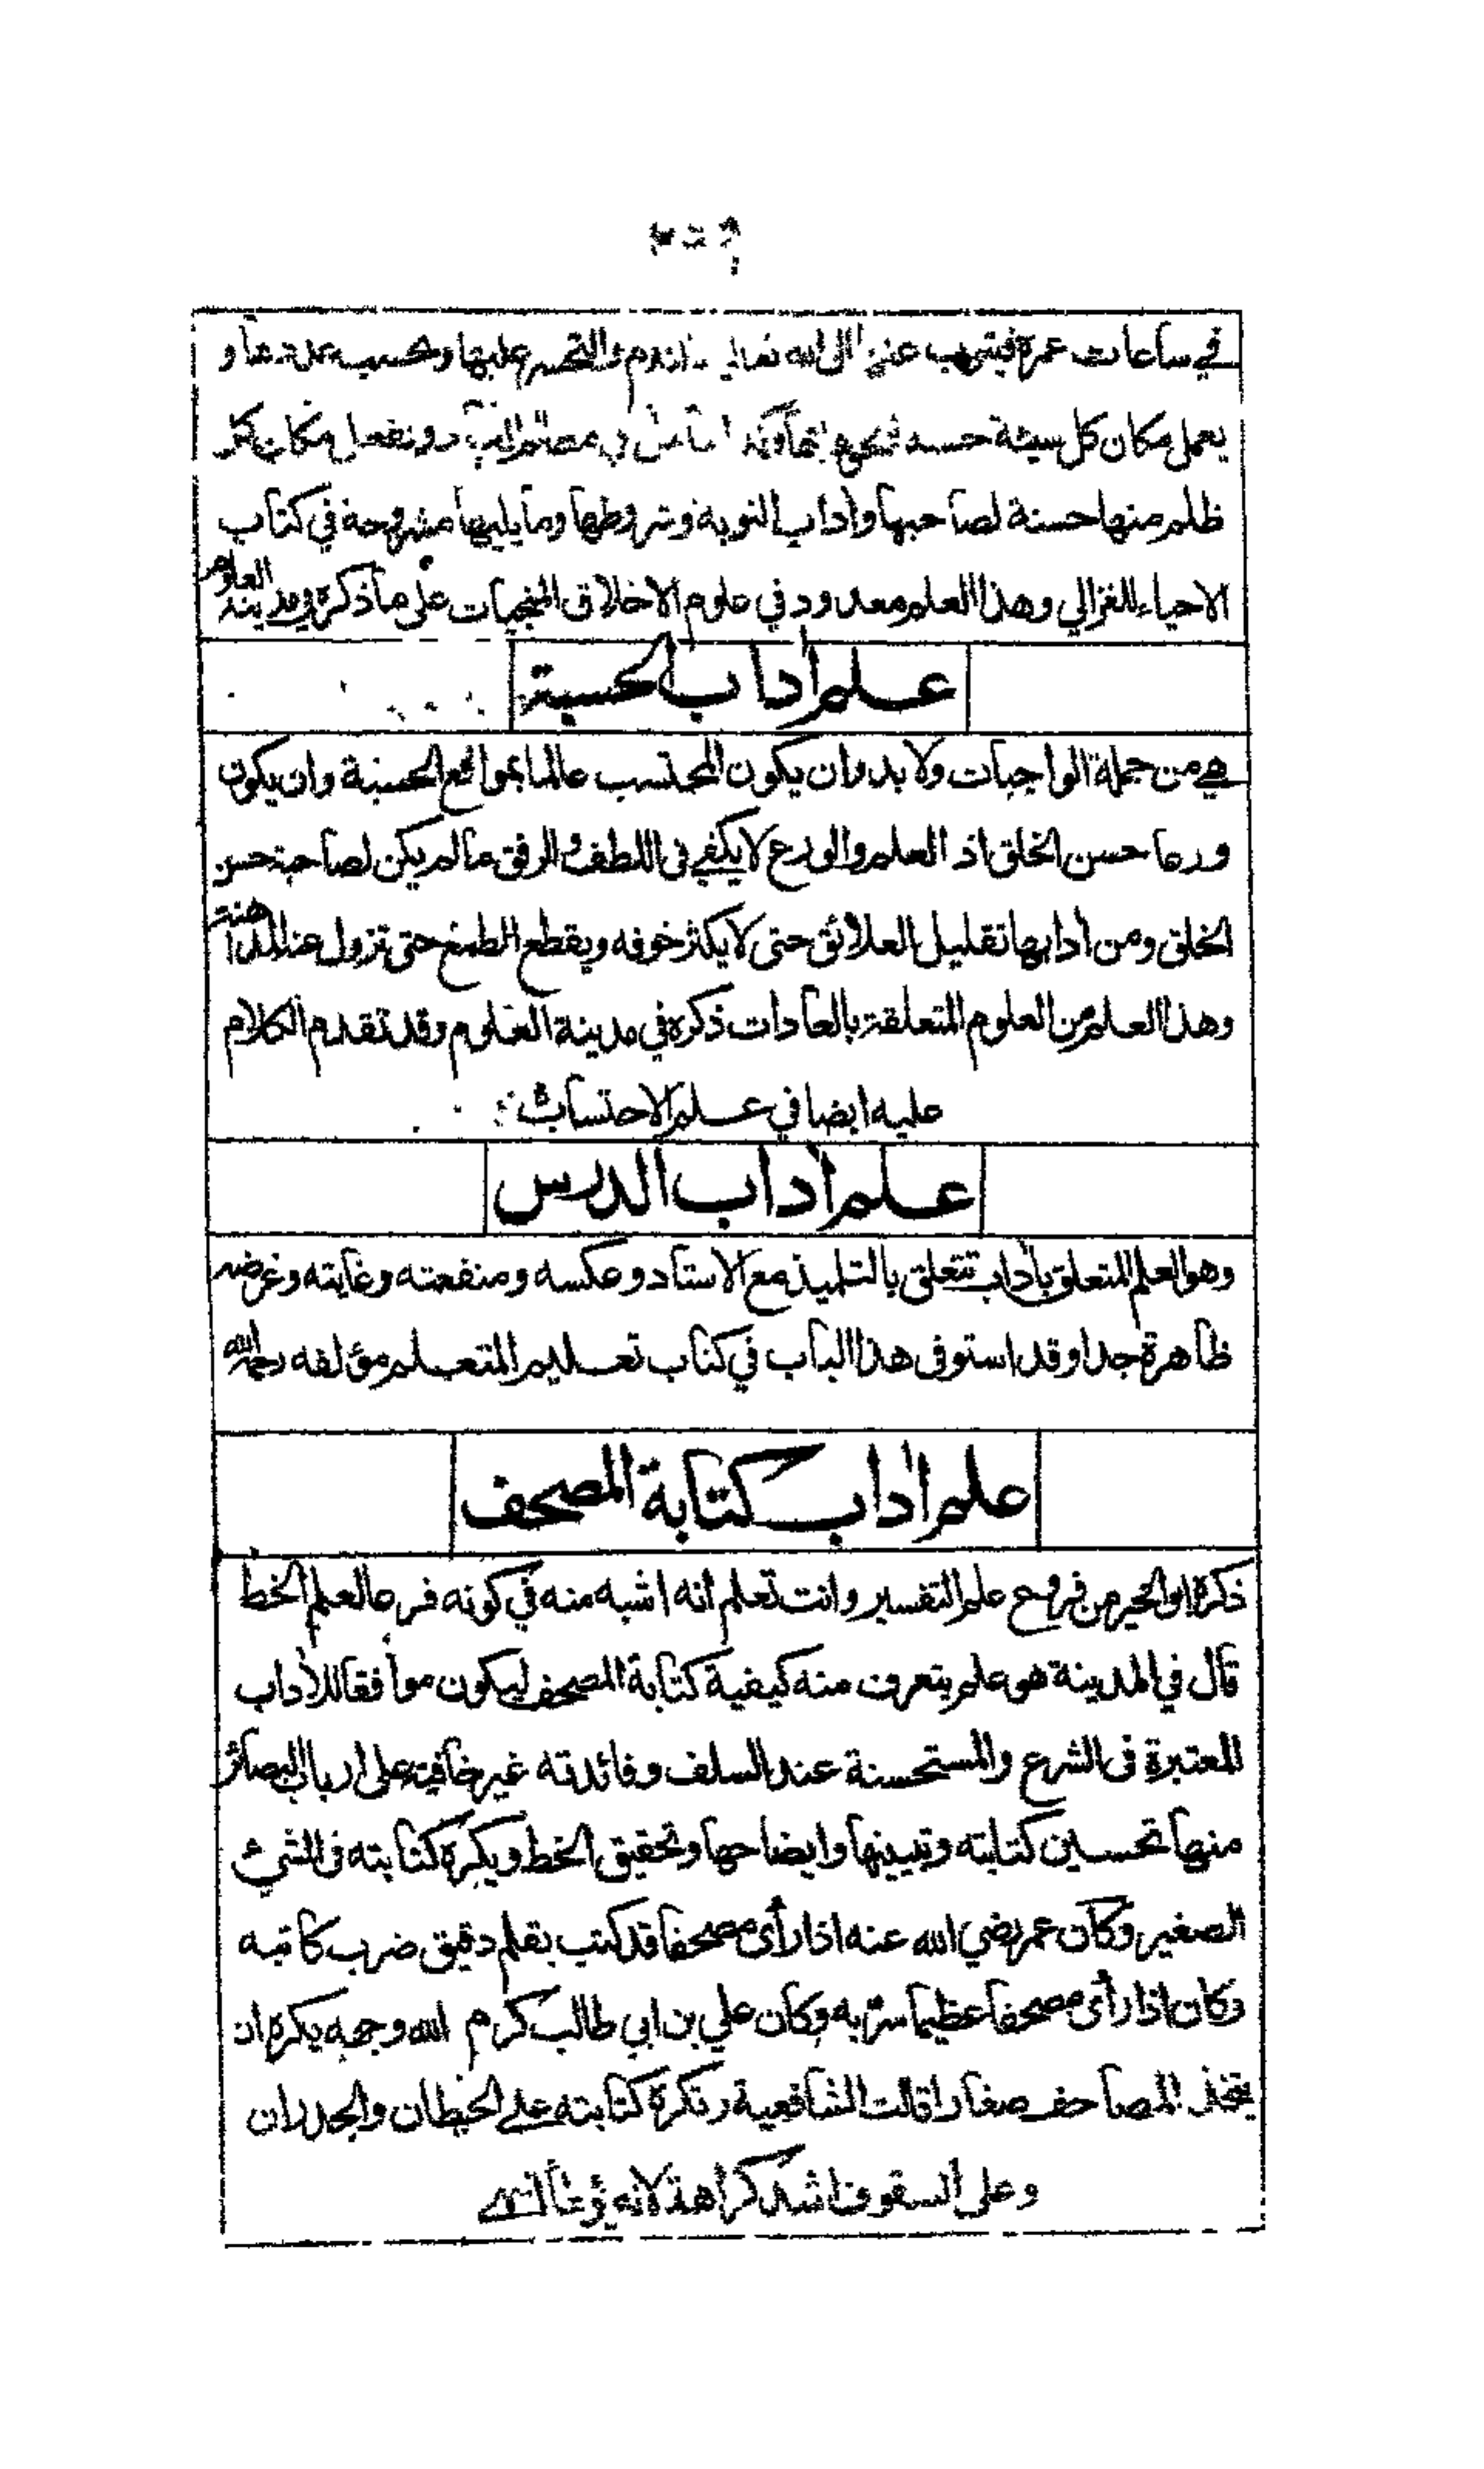 في ساعات عمره فيتوب عنها الى الله تعالى بالندم والتحسر عليها ويحسب عددها و
يعمل مكان كل سيئة حسنة في مظالم يفعل مكان كل
ظلم منها حسنة لصاحبها واداب التوبة وشروطها وما يليها مشروحة في كتاب
الاحياء للغزالي وهذا العلم معدود في علوم الاخلاق المنجيات على ما ذكره في مدينة العلوم
علم اداب الحسبة
هي من جملة الواجبات ولا بد وان يكون المحتسب عالما بمواقع الحسبة وان يكون
ورعا حسن الخلق اذ العلم والورع لا يكفي فى اللطف والرفق ما لم يكن لصاحبه حسن
الخلق ومن ادابها تقليل العلائق حتى لا يكثر خوفه ويقطع الطمع حتى تزول عنه المداهنة
وهذا العلم من العلوم المتعلقة بالعادات ذكره في مدينة العلوم وقد تقدم الكلام
عليه ايضا في علم الاحتساب
علم اداب الدرس
وهو العلم المتعلق بأداب تتعلق بالتلميذ مع الاستاد وعكسه ومنفعته وغايته وغرضه
ظاهرة جدا وقد استوفى هذا الباب في كتاب تعليم المتعلم مؤلفه رحمه الله
علم اداب كتابة المصحف
ذكره ابو الخير من فروع علم التفسير وانت تعلم انه اشبه منه في كونه فرعا لعلم الخط
قال في المدينة هو علم يتعرف منه كيفية كتابة المصحف ليكون موافقا للأداب
المعتبرة فى الشرع والمستحسنة عند السلف وفائدته غير خافية على ارباب البصائر
منها تحسين كتابته وتبيينها وايضاحها وتحقيق الخط ويكره كتابته فى الشئ
الصغير وكان عمر رضي الله عنه اذا رأى مصحفا قد كتب بقلم دقيق ضرب كاتبه
وكان اذا رأى مصحفا عظيما سر به وكان علي بن ابي طالب كرم الله وجهه يكره ان
يتخذ المصاحف صغارا قالت الشافعية وتكره كتابته على الحيطان والجدران
وعلى السقوف اشد كراهة لانه يؤطأ انتهى